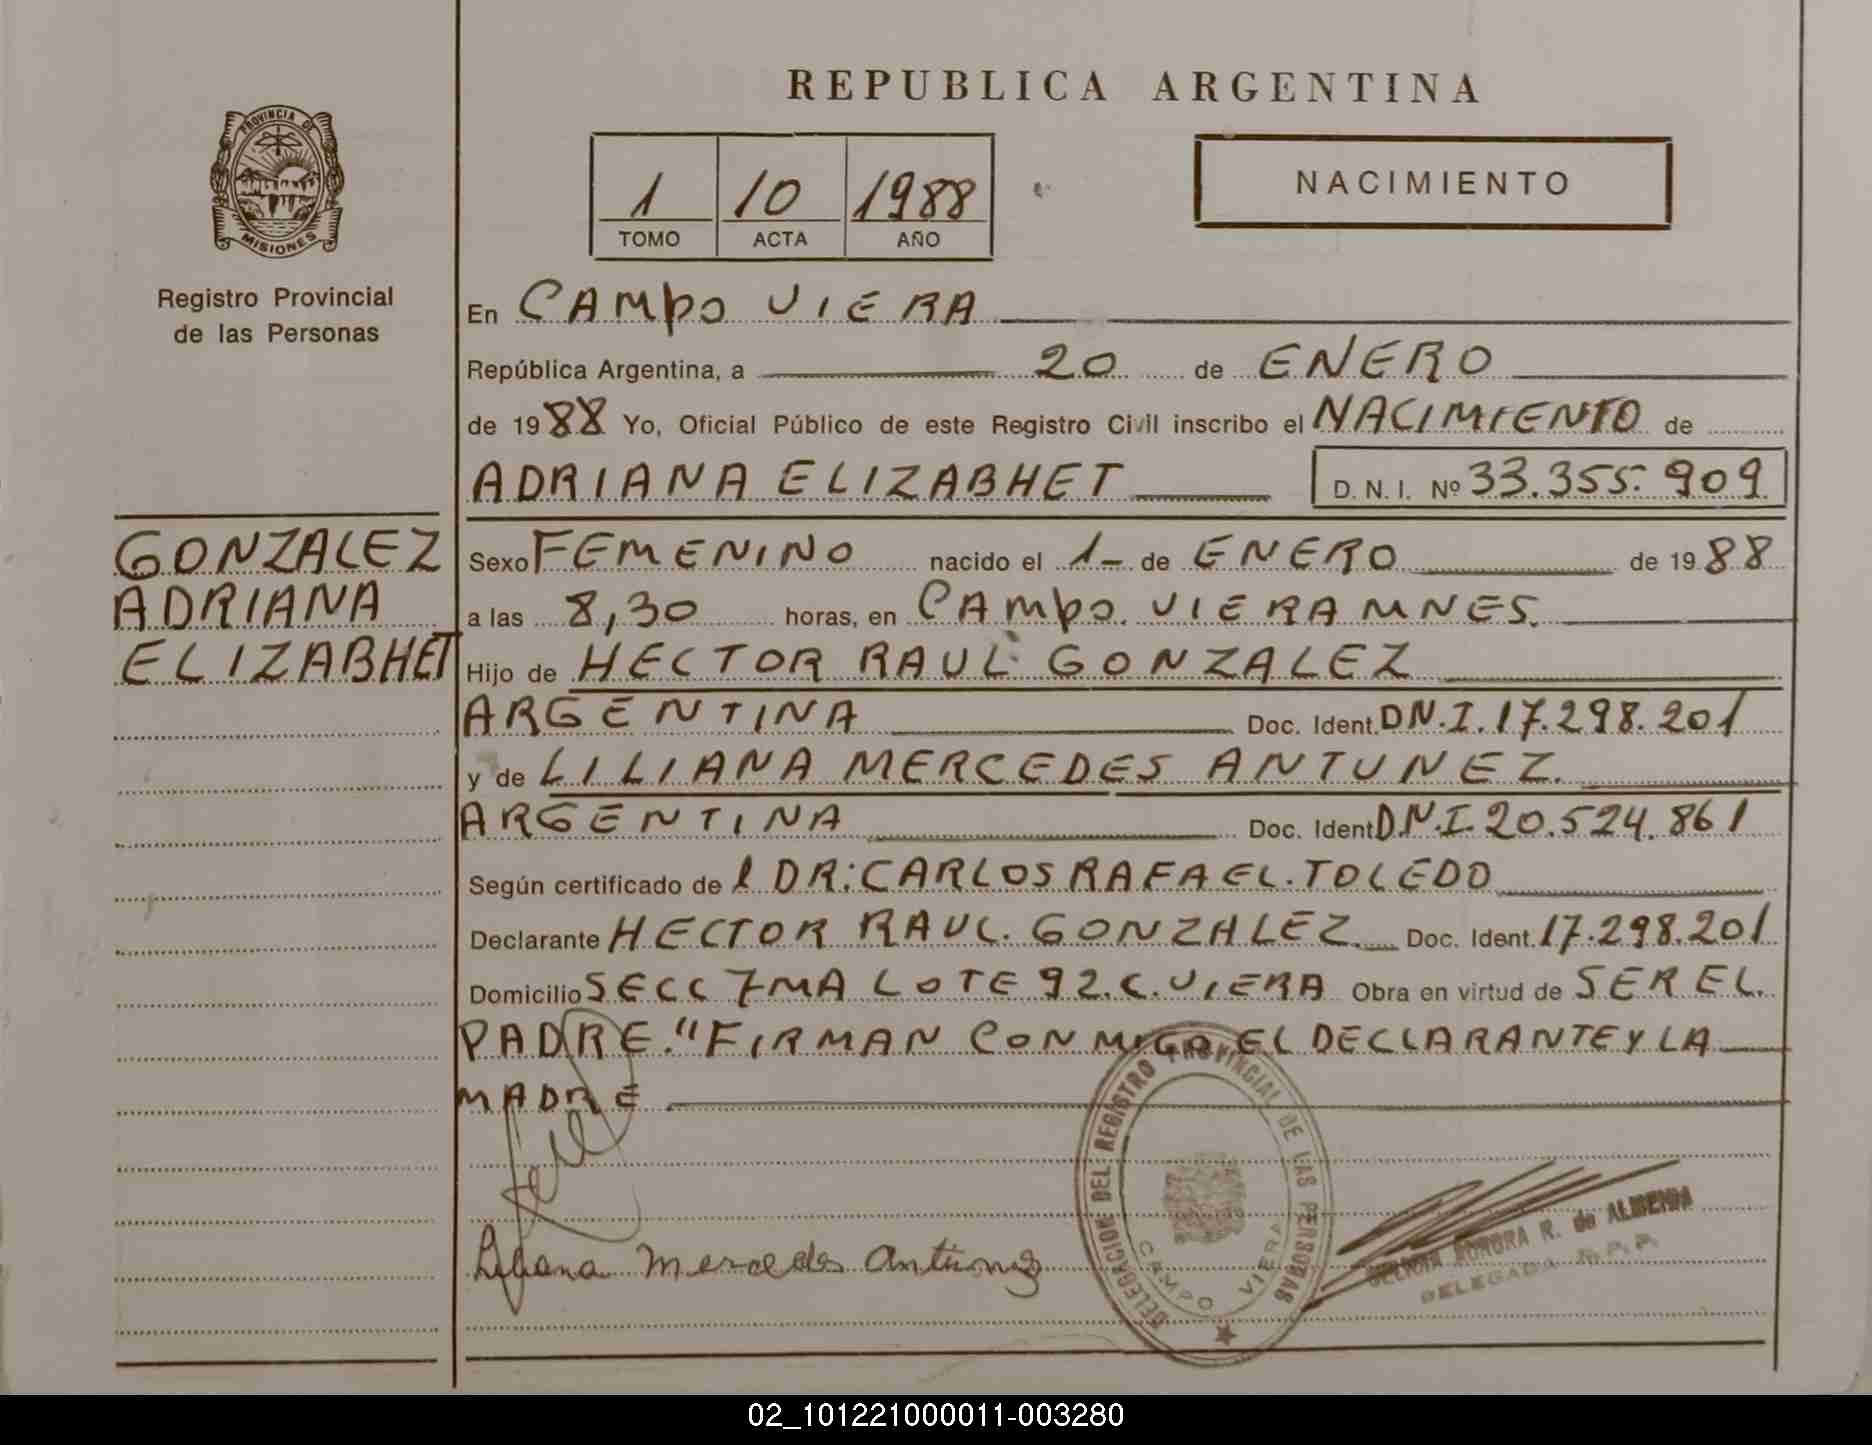 REPUBLICA ARGENTINA
PROVINCIA DE
MISIONES
Registro Provincial
de las Personas
1 10 1988
TOMO ACTA AÑO
NACIMIENTO
En CAMPO VIERA
República Argentina, a 20 de ENERO
de 1988 Yo, Oficial Público de este Registro Civil inscribo el NACIMIENTO de
ADRIANA ELIZABHET D. N. I. Nº 33.355.909
GONZALEZ
ADRIANA
ELIZABHET
Sexo FEMENINO nacido el 1- de ENERO de 1988
a las 8,30 horas, en CAMPO VIERA MNES.
Hijo de HECTOR RAUL GONZALEZ
ARGENTINA Doc. Ident. D.N.I. 17.298.201
y de LILIANA MERCEDES ANTUNEZ.
ARGENTINA Doc. Ident D.N.I. 20.524.861
Según certificado de l DR: CARLOS RAFAEL TOLEDO
Declarante HECTOR RAUL GONZALEZ Doc. Ident. 17.298.201
Domicilio SECC 7MA LOTE 92. C. VIERA Obra en virtud de SER EL
PADRE. "FIRMAN CONMIGO EL DECLARANTE Y LA
MADRE
Liliana Mercedes Antunez
DELEGACION DEL REGISTRO PROVINCIAL DE LAS PERSONAS
CAMPO VIERA
R. de ALMEIDA
DELEGADA R. P. P.
02_101221000011-003280